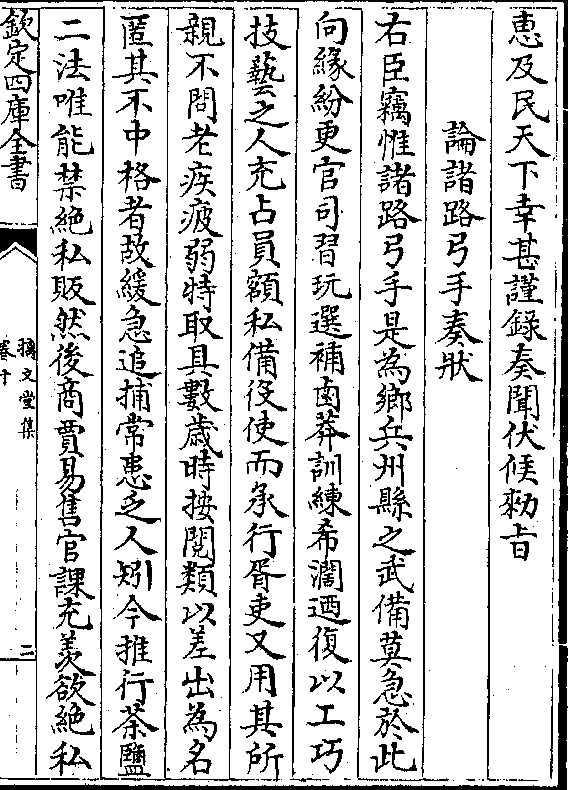 惠及民天下幸甚謹録奏聞伏候勑旨
論諸路弓手奏狀
右臣竊惟諸路弓手是為鄉兵州縣之武備莫急於此
向縁紛更官司習玩選補鹵莽訓練希濶迺復以工巧
技藝之人充占員額私備役使而承行胥吏又用其所
親不問老疾疲弱特取具數歳時按閲類以差出為名
匿其不中格者故緩急追捕常患乏人矧今推行茶鹽
二法唯能禁絶私販然後商賈易售官課充羡欲絶私
欽定四庫全書
摛文堂集
卷十
二